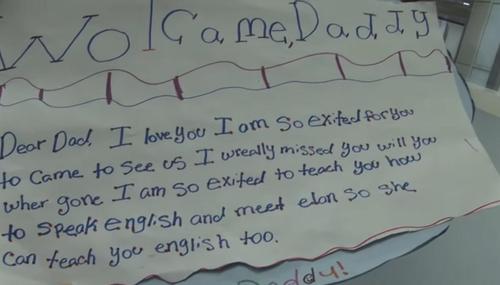 Wol Came, Daddy
Dear Dad, I love you I am so exited for you
to came to see us I wreally missed you will you
wher gone I am so exited to teach you how
to speak english and meet elan so she
can teach you english too.
Daddy!